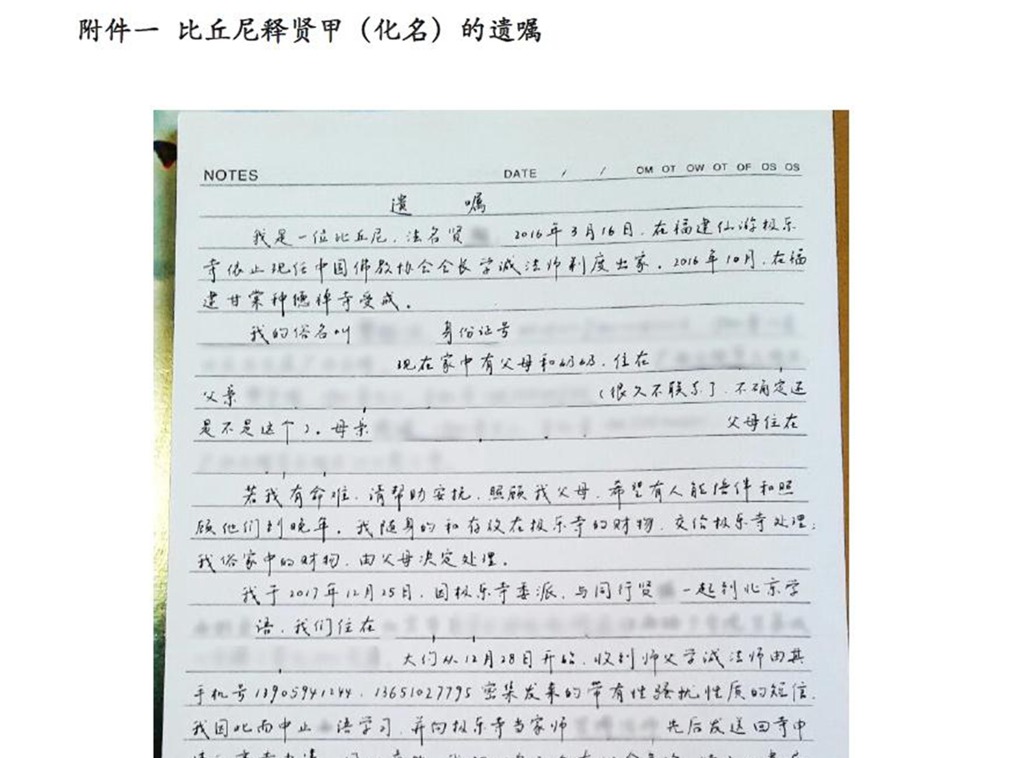 附件一 比丘尼释贤甲（化名）的遗嘱
NOTES DATE / / OM OT OW OT OF OS OS
遗 嘱
我是一位比丘尼，法名贤 2016年3月16日，在福建仙游极乐
寺依止现任中国佛教协会会长学诚法师剃度出家。2016年10月，在福
建甘棠种德禅寺受戒。
我的俗名叫 身份证号
现在家中有父母和奶奶，住在
父亲 （很久不联系了，不确定还
是不是这个）。母亲 父母住在
若我有命难，请帮助安抚、照顾我父母，希望有人能陪伴和照
顾他们到晚年。我随身的和存放在极乐寺的财物，交给极乐寺处理；
我俗家中的财物，由父母决定处理。
我于2017年12月25日，因极乐寺委派，与同行贤 一起到北京学
语，我们住在
大约从12月28日开始，收到师父学诚法师由其
手机号13905941244、13651027795密集发来的带有性骚扰性质的短信，
我因此而中止 语学习，并向极乐寺当家师 先后发送回寺中